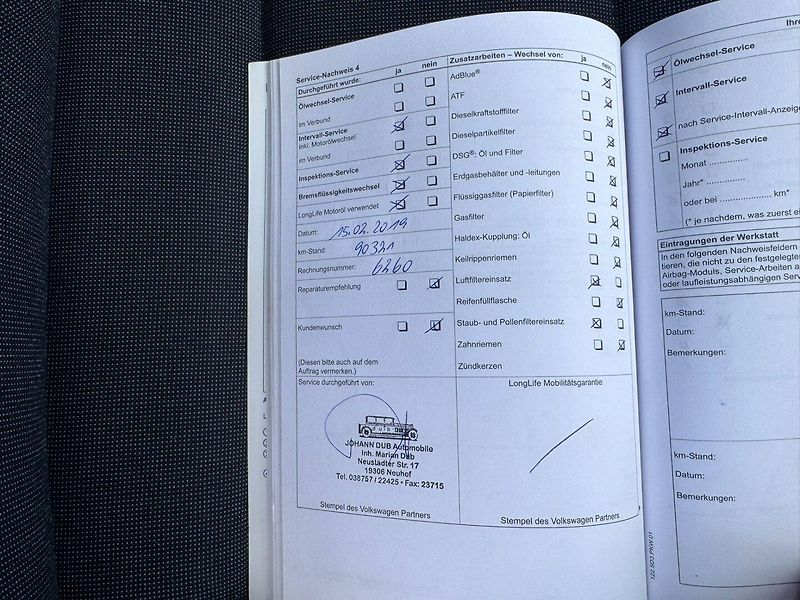 Service-Nachweis 4
ja nein
Durchgeführt wurde:
Ölwechsel-Service
im Verbund
Intervall-Service
inkl. Motorölwechsel
im Verbund
Inspektions-Service
Bremsflüssigkeitswechsel
LongLife Motoröl verwendet
Datum: 15.02.2019
km-Stand: 90321
Rechnungsnummer: 6260
Reparaturempfehlung
Kundenwunsch
(Diesen bitte auch auf dem
Auftrag vermerken.)
Service durchgeführt von:
JOHANN DUB Automobile
Inh. Marian Dub
Neustädter Str. 17
19306 Neuhof
Tel. 038757 / 22425 • Fax: 23715
Stempel des Volkswagen Partners
Zusatzarbeiten – Wechsel von: ja nein
AdBlue®
ATF
Dieselkraftstofffilter
Dieselpartikelfilter
DSG®: Öl und Filter
Erdgasbehälter und -leitungen
Flüssiggasfilter (Papierfilter)
Gasfilter
Haldex-Kupplung: Öl
Keilrippenriemen
Luftfiltereinsatz
Reifenfüllflasche
Staub- und Pollenfiltereinsatz
Zahnriemen
Zündkerzen
LongLife Mobilitätsgarantie:
Stempel des Volkswagen Partners
Ihre
Ölwechsel-Service
Intervall-Service
nach Service-Intervall-Anzeige
Inspektions-Service
Monat ..............
Jahr* ..............
oder bei .................... km*
(* je nachdem, was zuerst
Eintragungen der Werkstatt
In den folgenden Nachweisfeldern
tieren, die nicht zu den festgelegte
Airbag-Moduls, Service-Arbeiten a
oder laufleistungsabhängigen Serv
km-Stand:
Datum:
Bemerkungen:
km-Stand:
Datum:
Bemerkungen:
122.5D3.PKW.01